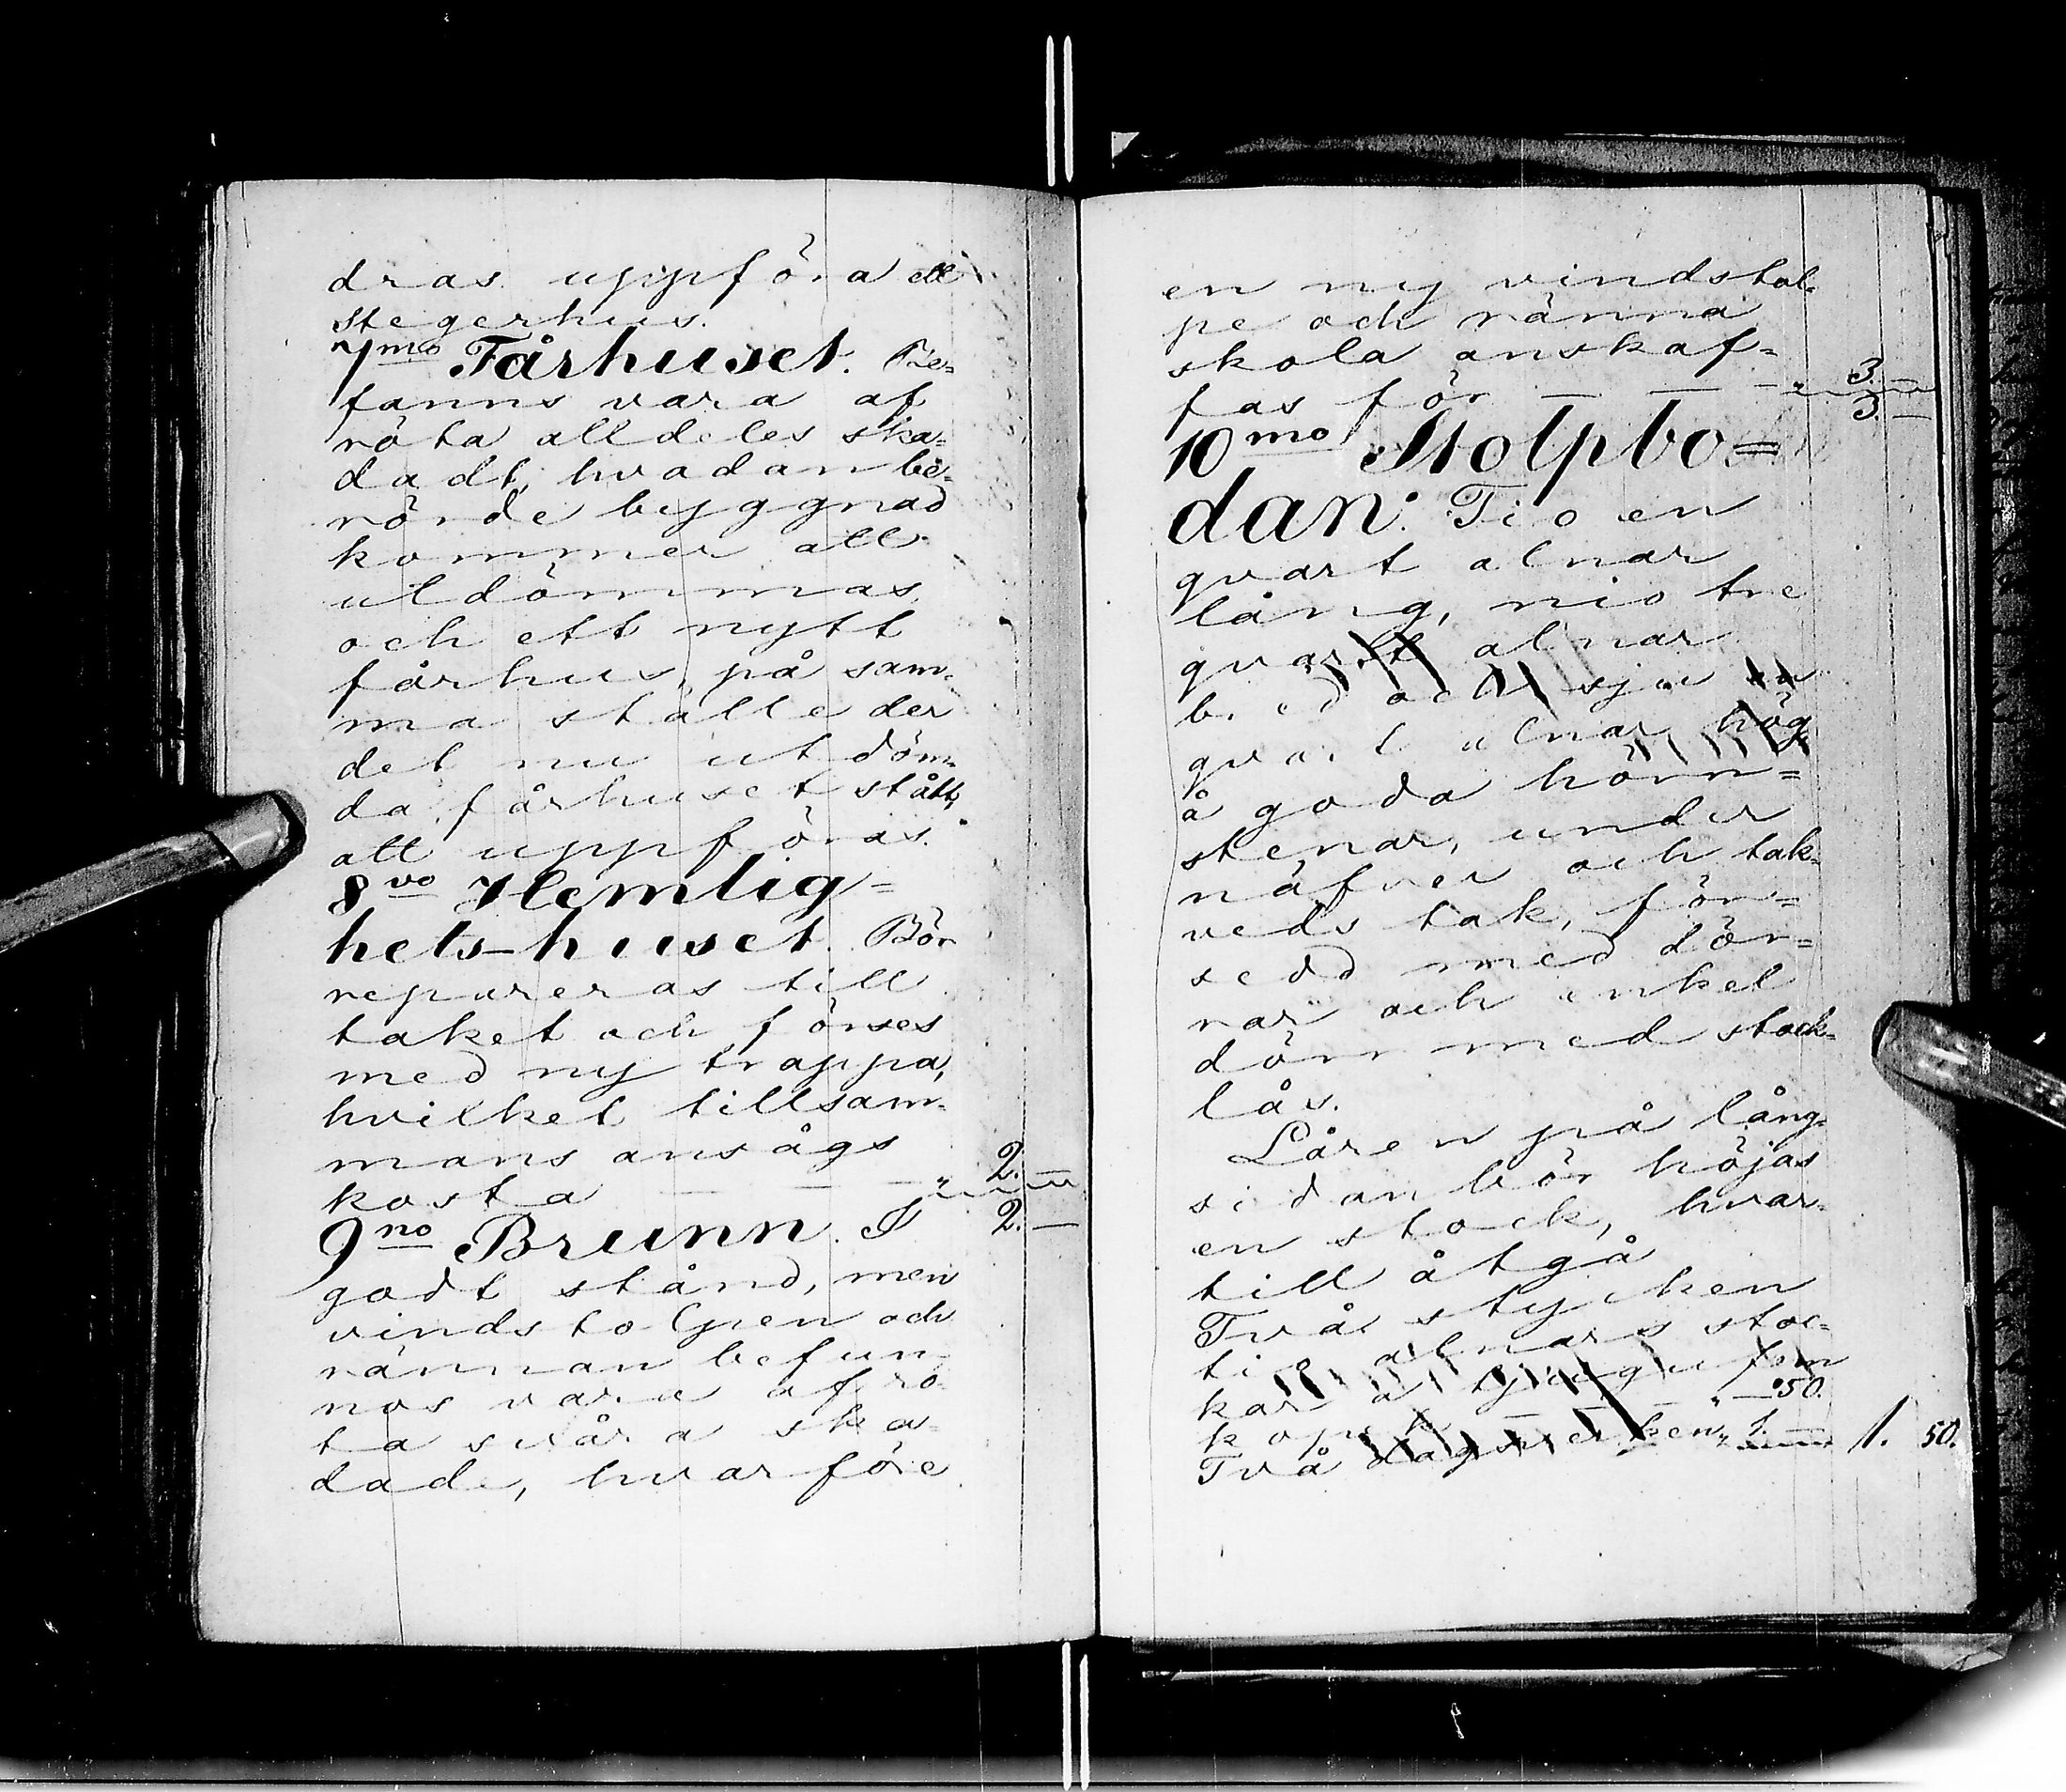 dras uppföra ett
stegerhus.
7mo Fårhuset. Be-
fanns vara af
röta alldeles ska-
dadt, hvadan be-
rörde byggnad
kommer att
utdömmas
och ett nytt
fårhus, på sam-
ma ställe der
det nu utdöm-
da fårhuset stått,
att uppföras.
8vo Hemlig=
hets-huset. Bör
repareras till
taket och förses
med ny trappa,
hvilket tillsam-
mans ansågs
kosta — — — " 2. —
9no Brunn. I 2. —
godt stånd, men
vindstolpen och
rännan befun-
nos vara af rö-
ta svåra ska-
dade, hvarföre
en ny vindstol-
pe och ränna
skola anskaf=
fas för — — — " 3. —
3. —
10mo Stolpbo=
dan: Tio en
qvart alnar
lång, nio tre
qvart alnar
bred och sju en
qvart alnar hög
å goda hörn=
stenar, under
näfver och tak-
veds tak, för=
sedd med dör=
rar och enkel
dörr med stock-
lås.
Låren på lång-
sidan bör höjas
en stock, hvar-
till åtgå
Två stycken
tio alnars stoc=
kar à tjugufem
kop. — — — " — 50.
Två dagsverken " 1. — 1. 50.